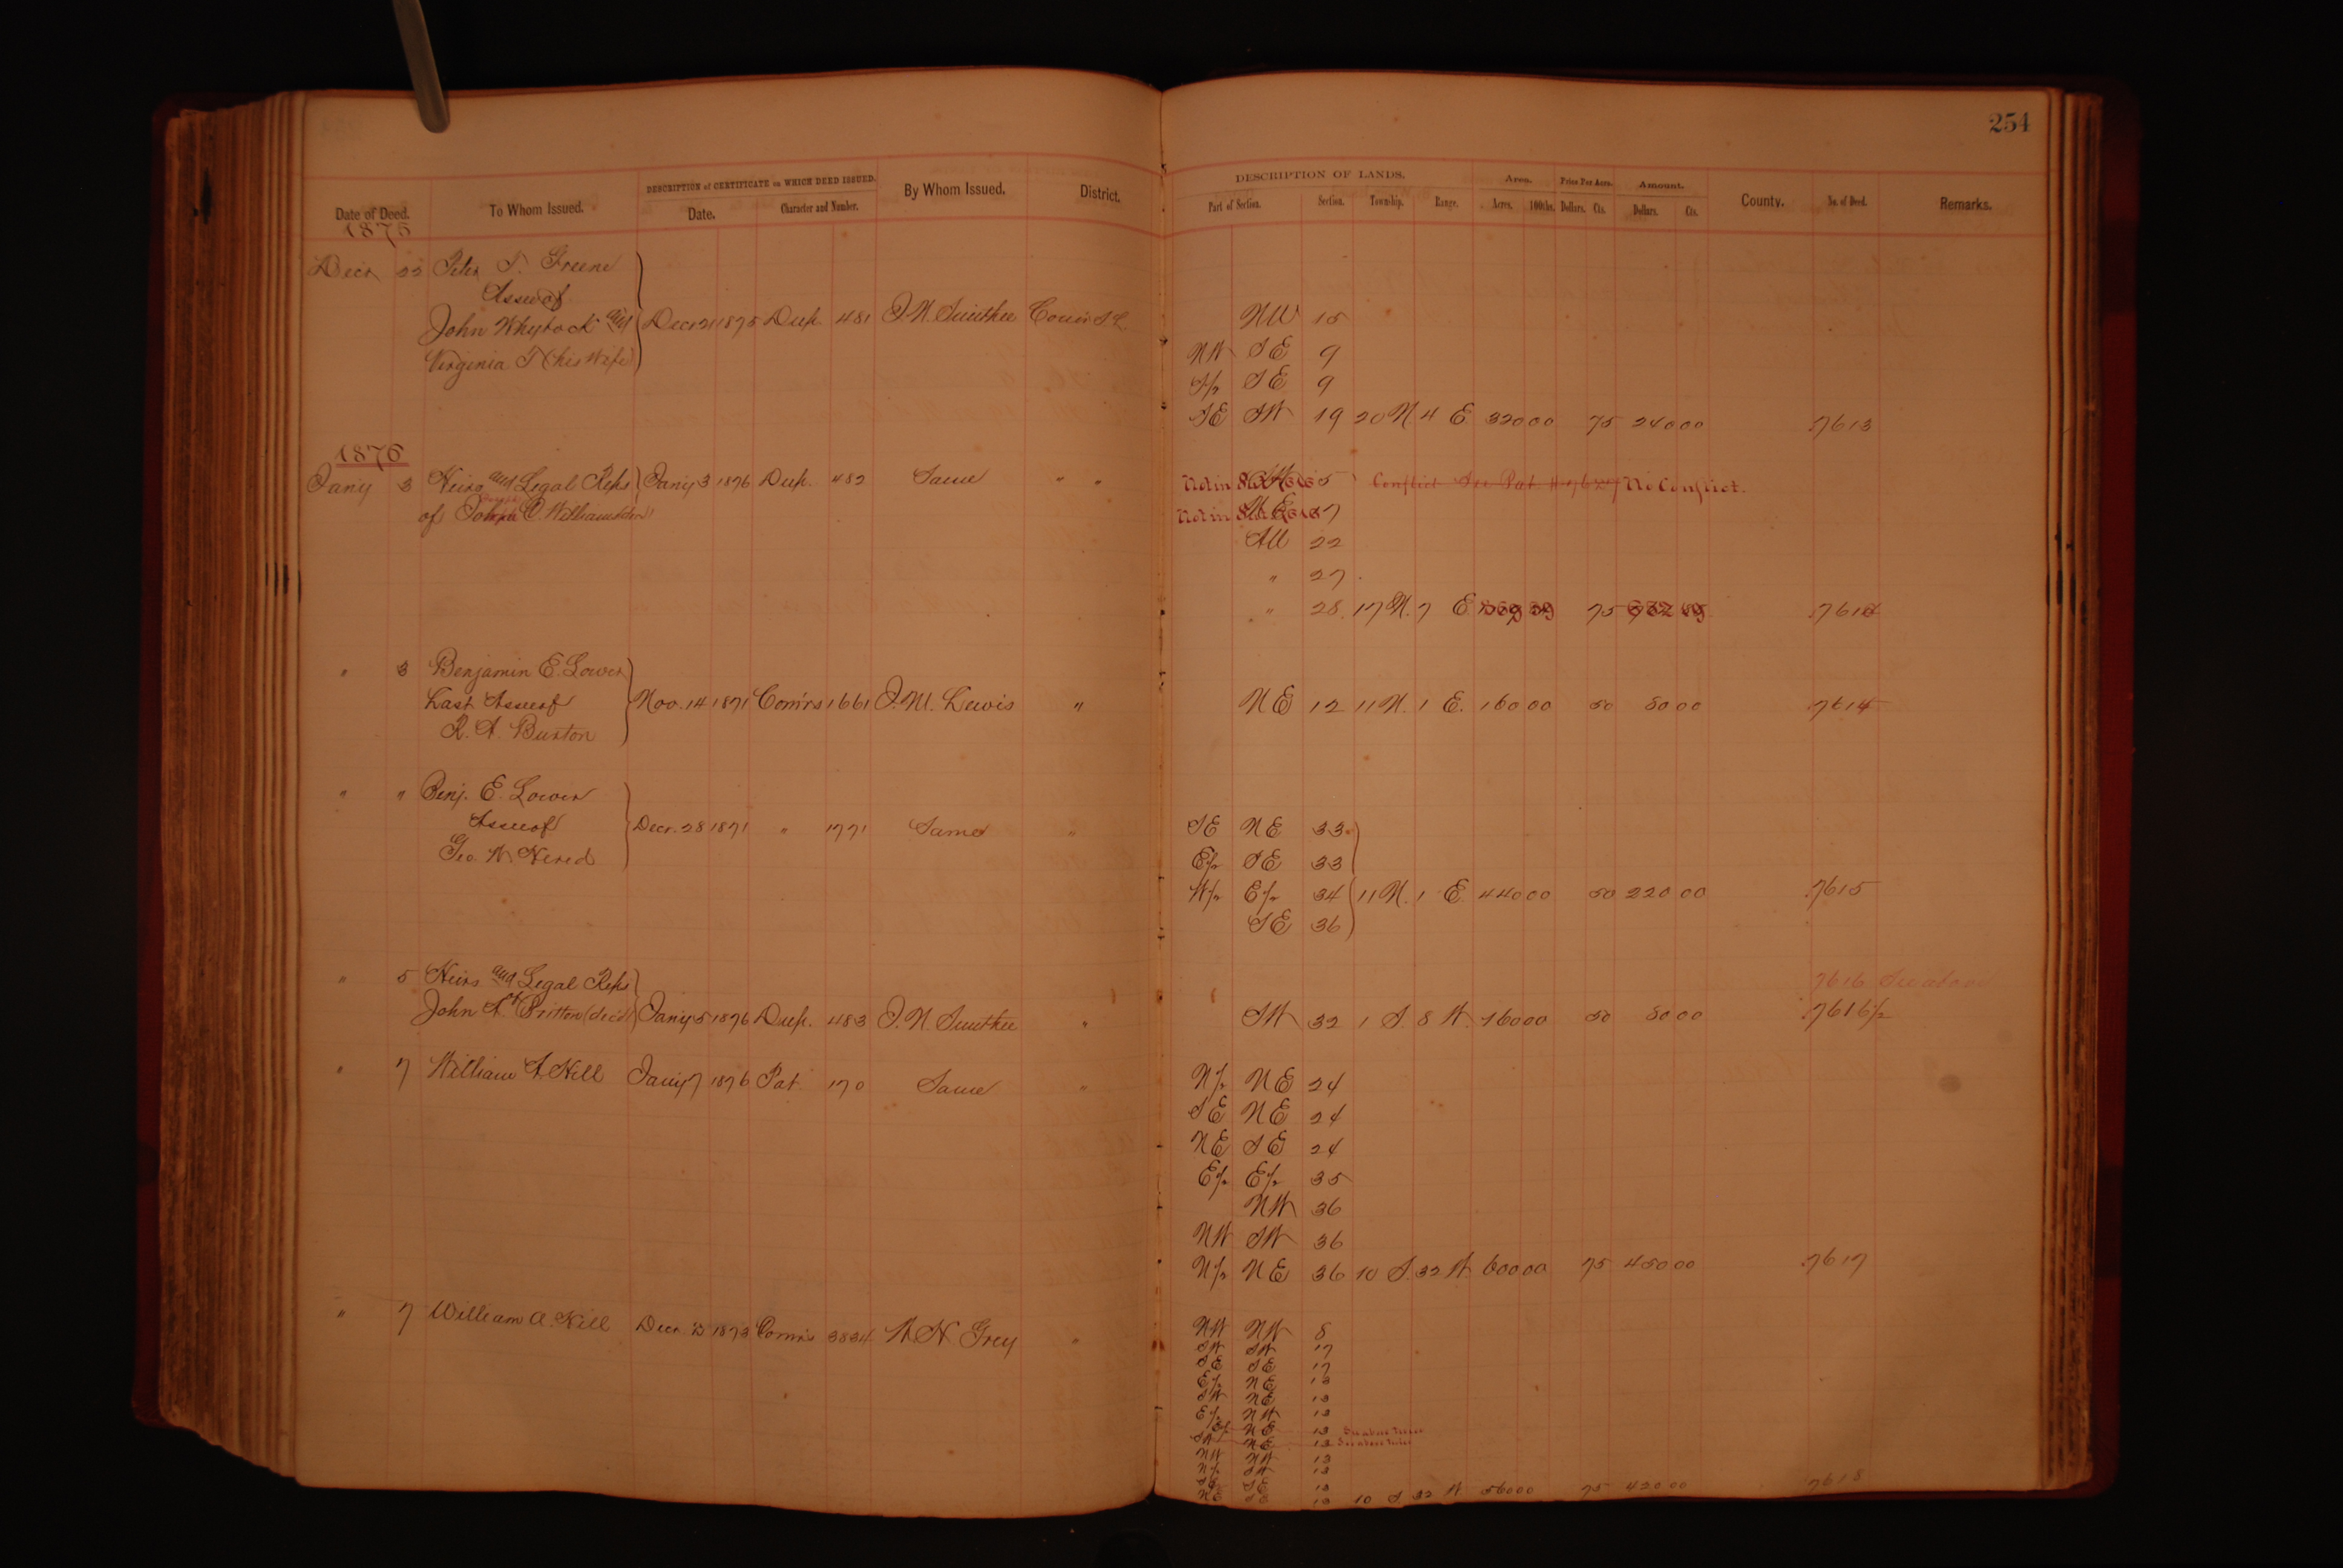 254
DESCRIPTION of CERTIFICATE on WHICH DEED ISSUED. DESCRIPTION OF LANDS. Area. Price Per Acre. Amount.
Date of Deed. To Whom Issued. Date. Character and Number. By Whom Issued. District. Part of Section. Section. Township. Range. Acres. 100ths. Dollars. Cts. Dollars. Cts. County. No. of Deed. Remarks.
1875
Decr 22 Peter T. Greene
Assee of
John Whytock and Decr 21 1875 Dup. 481 J. N. Smithee Com'r S. L. NW 15
Virginia T (his Wife) NW SE 9
S/2 SE 9
SE SW 19 20 N 4 E 320 00 75 240 00 7613
1876
Jany 3 Heirs and Legal Reps Jany 3 1876 Dup. 482 Same " " Not in 5 Conflict See Pat # No Conflict.
of C. Williams Not in 7
22
" 27
" 28 17 N. 7 E 75
" 3 Benjamin E. Lower
Last Assee of Nov. 14 1871 Com'rs 1661 J. M. Lewis " NE 12 11 N. 1 E. 160 00 50 80 00 7614
R. A. Burton
" " Benj. E. Lower
Assee of Decr. 28 1871 " 1771 Same " SE NE 33
Geo. W. Hered E/2 SE 33
W/2 E/2 34 11 N. 1 E 440 00 50 220 00 7615
SE 36
" 5 Heirs and Legal Reps 7616 See above
John Britton (dec'd) Jany 5 1876 Dup. 483 J. N. Smithee " SW 32 1 S. 8 W. 160 00 50 80 00 7616 1/2
" 7 William A. Hill Jany 7 1876 Pat 170 Same " N/2 NE 24
SE NE 24
NE SE 24
E/2 E/2 35
NW 36
NW SW 36
N/2 NE 36 10 S. 32 W 600 00 75 450 00 7617
" 7 William A. Hill Decr. 1873 Com'rs 3834 W. H. Grey " NW NW 8
SW SW 17
SE SE 17
E/2 NE 13
SW NE 13
E/2 NW 13
NE 13
SW NE 13
NW NW 13
N/2 SW 13
SE SE 13
NE SE 13 10 S 32 W 560 00 75 420 00 7618